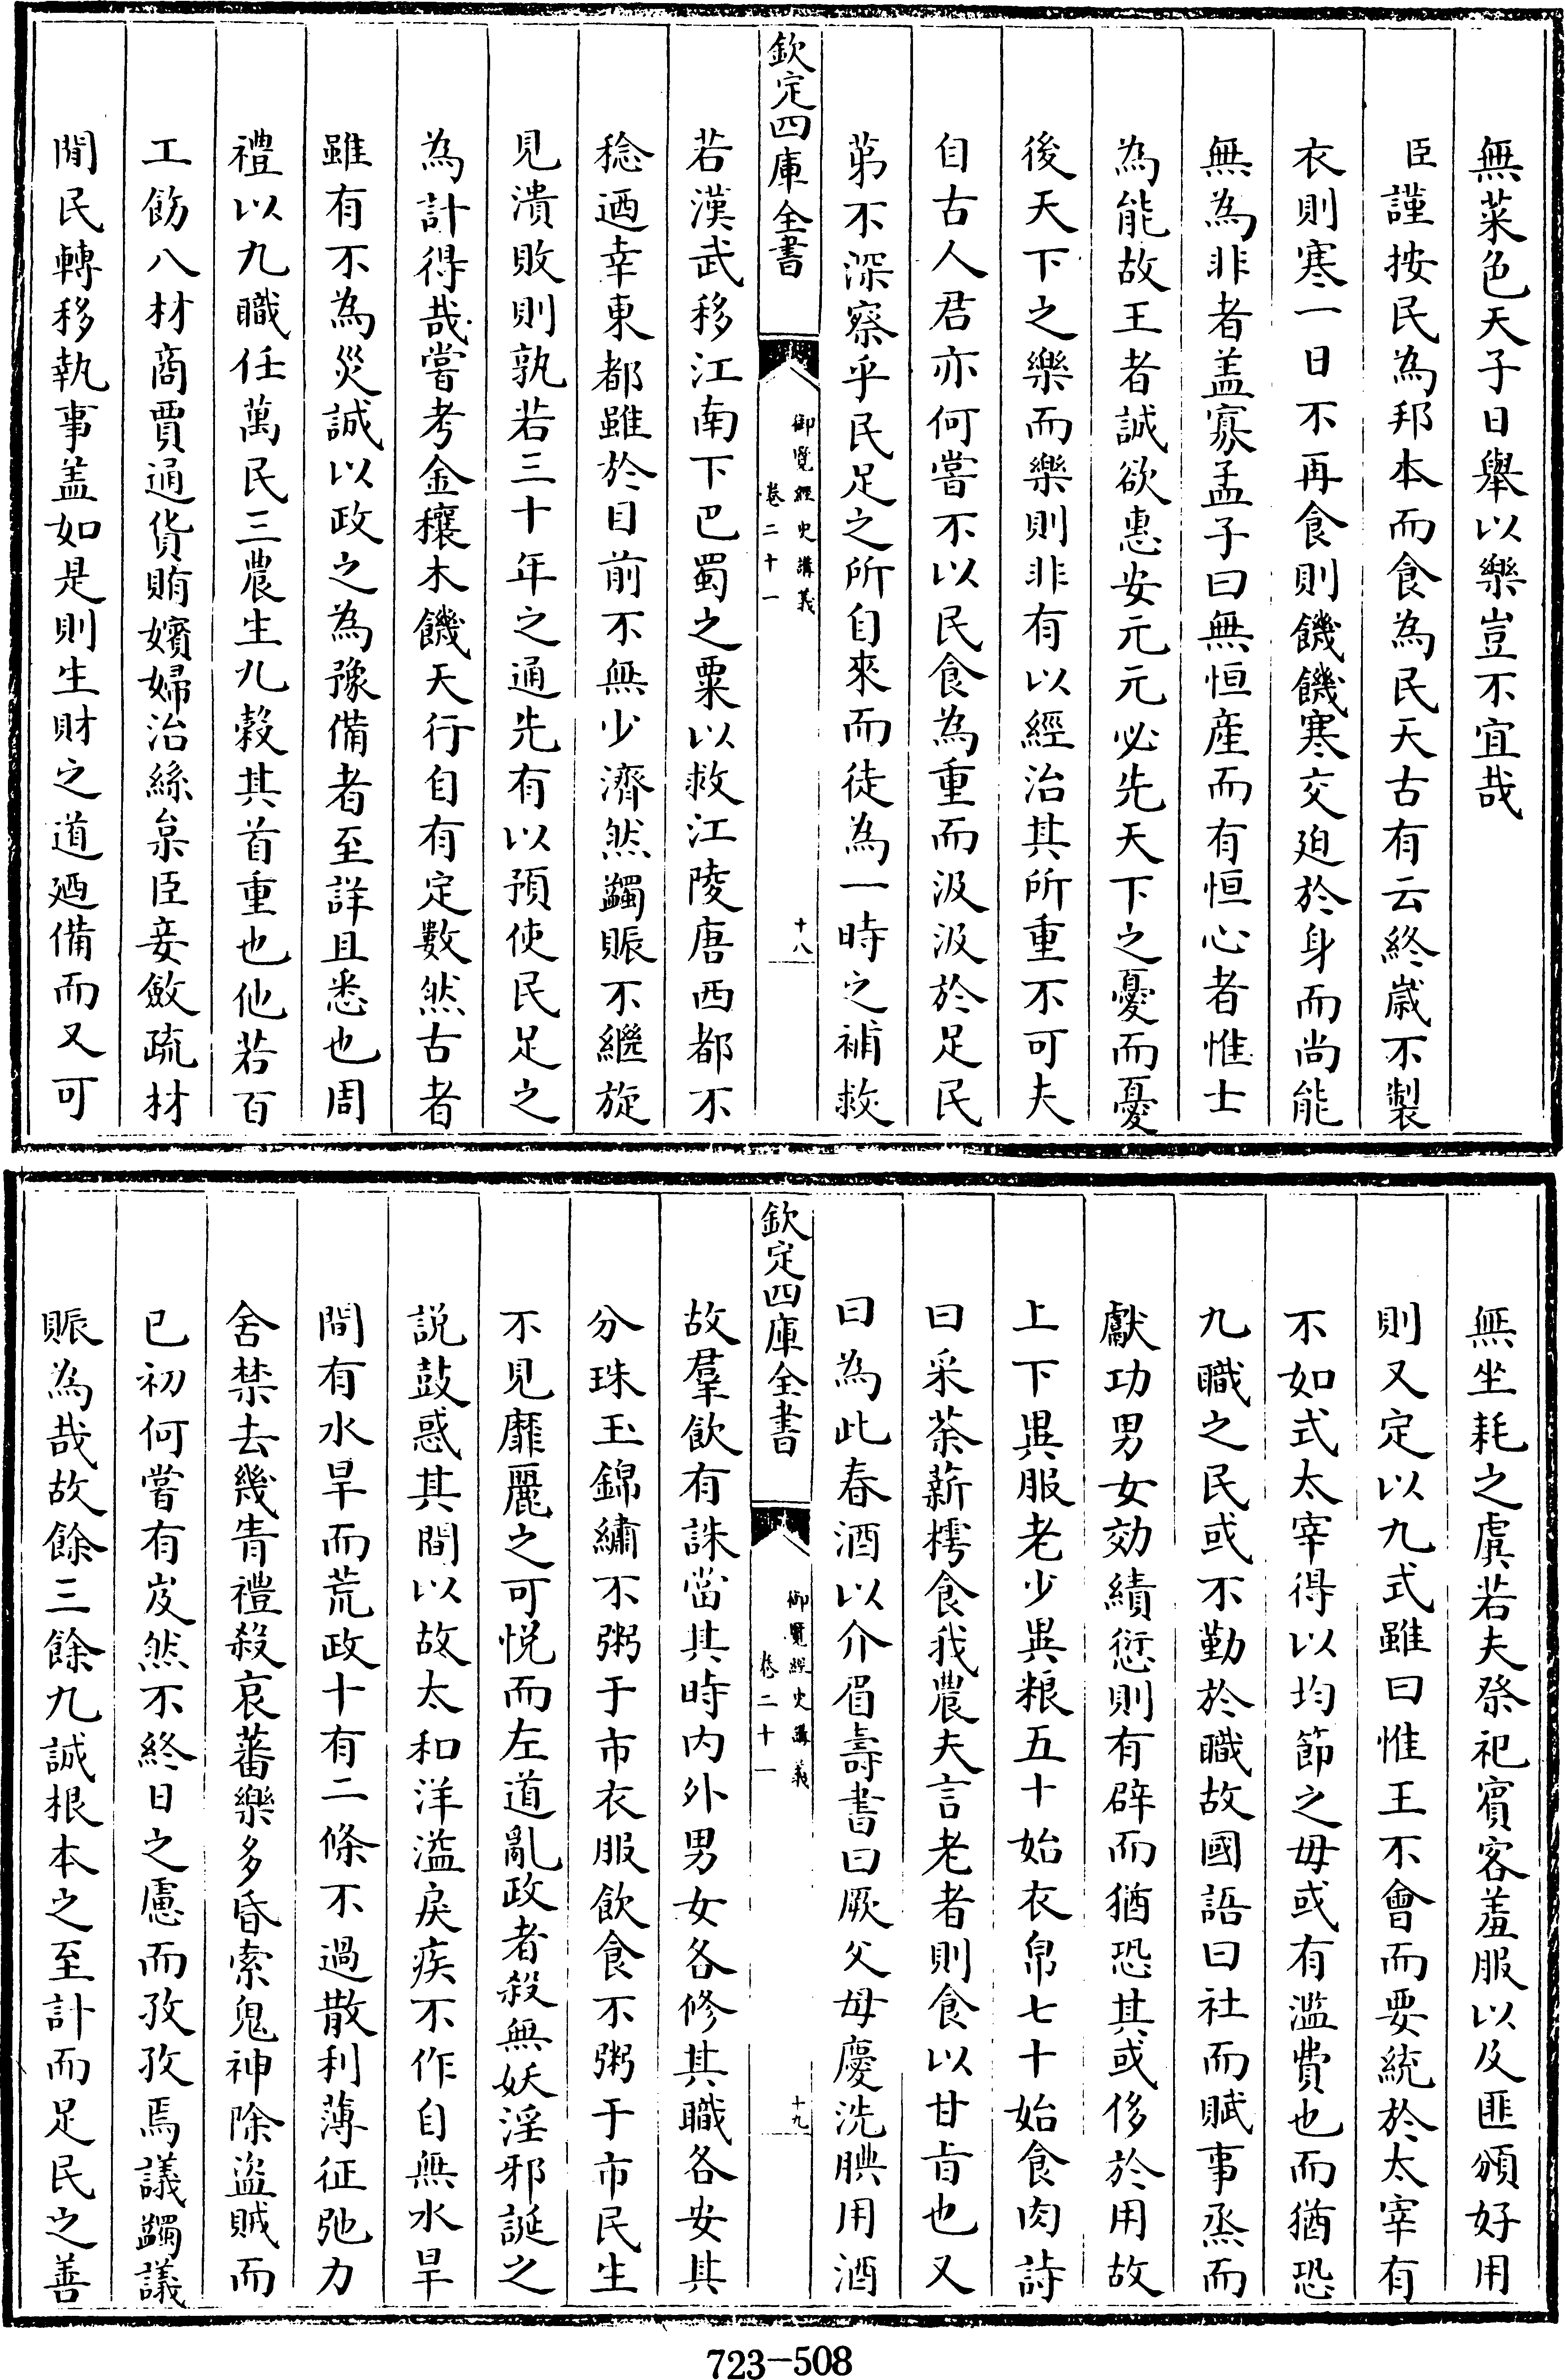 無菜色天子日舉以樂豈不宜哉
臣謹按民為邦本而食為民天古有云終歲不製
衣則寒一日不再食則饑饑寒交廹於身而尚能
無為非者盖寡孟子曰無恒産而有恒心者惟士
為能故王者誠欲惠安元元必先天下之憂而憂
後天下之樂而樂則非有以經治其所重不可夫
自古人君亦何嘗不以民食為重而汲汲於足民
苐不深察乎民足之所自來而徒為一時之補救
欽定四庫全書
御覽經史講義
卷二十一
十八
若漢武移江南下巴蜀之粟以救江陵唐西都不
稔迺幸東都雖於目前不無少濟然蠲賑不繼旋
見潰敗則孰若三十年之通先有以預使民足之
為計得哉嘗考金穰木饑天行自有定數然古者
雖有不為災誠以政之為豫備者至詳且悉也周
禮以九職任萬民三農生九穀其首重也他若百
工飭八材商賈通貨賄嬪婦治絲枲臣妾斂疏材
閒民轉移執事盖如是則生財之道廼備而又可
無坐耗之虞若夫祭祀賓客羞服以及匪頒好用
則又定以九式雖曰惟王不會而要統於太宰有
不如式太宰得以均節之毋或有濫費也而猶恐
九職之民或不勤於職故國語曰社而賦事烝而
獻功男女効績愆則有辟而猶恐其或侈於用故
上下異服老少異粮五十始衣帛七十始食肉詩
曰采荼薪樗食我農夫言老者則食以甘旨也又
曰為此春酒以介眉壽書曰厥父母慶洗腆用酒
欽定四庫全書
御覽經史講義
卷二十一
十九
故羣飲有誅當其時内外男女各修其職各安其
分珠玉錦繡不粥于市衣服飲食不粥于市民生
不見靡麗之可悦而左道亂政者殺無妖淫邪誕之
説鼓惑其間以故太和洋溢戾疾不作自無水旱
間有水旱而荒政十有二條不過散利薄征弛力
舍禁去幾眚禮殺哀蕃樂多昏索鬼神除盜賊而
已初何嘗有岌然不終日之慮而孜孜焉議蠲議
賑為哉故餘三餘九誠根本之至計而足民之善
723-508